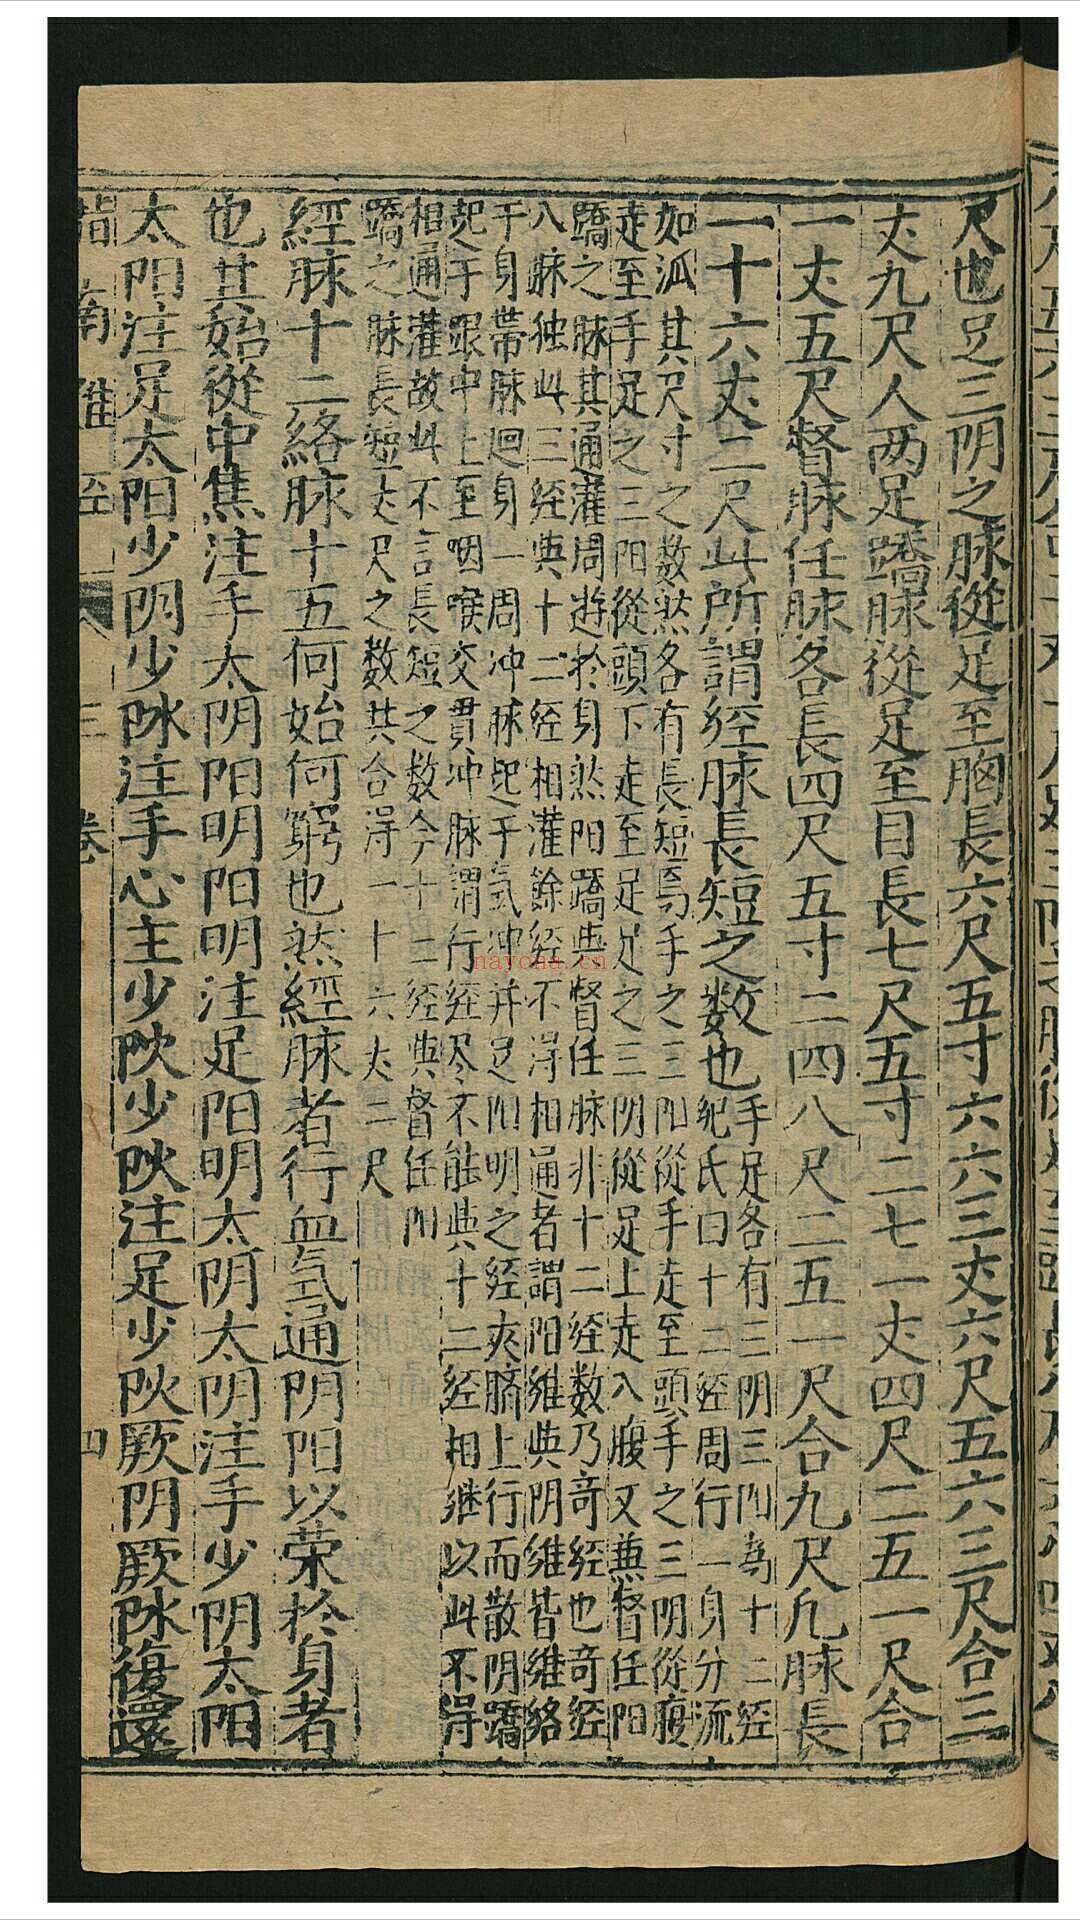 尺也足三阴之脉從足至胸長六尺五寸六六三丈六尺五六三尺合三
丈九尺人两足蹻脉從足至目長七尺五寸二七一丈四尺二五一尺合
一丈五尺督脉任脉各長四尺五寸二四八尺二五一尺合九尺凢脉長
一十六丈二尺此所謂經脉長短之数也
手足各有三阴三阳為十二經
紀氏曰十二經周行一身分流
如派其尺寸之数然各有長短焉手之三阳從手走至頭手之三阴從腹
走至手足之三阳從頭下走至足足之三阴從足上走入腹又兼督任阳
蹻之脉其通灌周遊於身然阳蹻典督任脉非十二經数乃竒經也竒經
八脉独此三經典十二經相灌餘經不淂相通者謂阳維典阴維皆維絡
于身帯脉迴身一周冲脉起于氣冲并足阳明之經夾臍上行而散阴蹻
起于跟中上至咽喉交貫冲脉謂行經尽不能典十二經相继以此不淂
相通灌故此不言長短之数今十二經典督任阳
蹻之脉長短丈尺之数共合淂一十六丈二尺
經脉十二絡脉十五何始何窮也然經脉者行血氣通阴阳以荣於身者
也其始從中焦注手太阴阳明阳明注足阳明太阴太阴注手少阴太阳
太阳注足太阳少阴少阴注手心主少阳少阳注足少阳厥阴厥阴復還
指南難經
三卷
四
nayona.cn